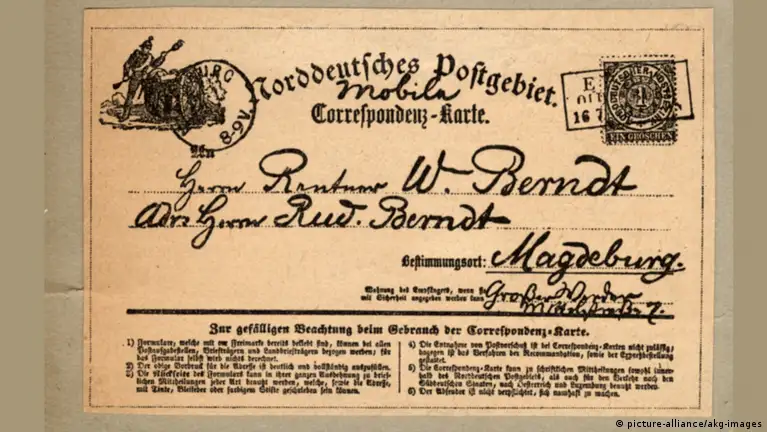 Norddeutsches Postgebiet.
Mobila
Correspondenz-Karte.
URG
8-9V.
EIN GROSCHEN
An
Herrn Rentner W. Berndt
Adr: Herrn Rud. Berndt
Bestimmungsort: Magdeburg.
Wohnung des Empfängers, wenn sie
mit Sicherheit angegeben werden kann
Großer Werder
Mittelstraße 7.
Zur gefälligen Beachtung beim Gebrauch der Correspondenz-Karte.
1) Formulare, welche mit der Freimarke bereits beklebt sind, können bei allen
Postaufgabestellen, Briefträgern und Landbriefträgern bezogen werden; für
das Formular selbst wird nichts berechnet.
2) Der obige Vordruck für die Adresse ist deutlich und vollständig auszufüllen.
3) Die Rückseite des Formulars kann in ihrer ganzen Ausdehnung zu brief-
lichen Mittheilungen jeder Art benutzt werden, welche, sowie die Adresse,
mit Tinte, Bleifeder oder farbigem Stifte geschrieben sein können.
4) Die Entnahme von Postvorschuß ist bei Correspondenz-Karten nicht zulässig;
dagegen ist das Verfahren der Recommandation, sowie der Expreßbestellung
gestattet.
5) Die Correspondenz-Karte kann zu schriftlichen Mittheilungen sowohl inner-
halb des Norddeutschen Postgebiets, als auch für den Verkehr nach den
Süddeutschen Staaten, nach Oesterreich und Luxemburg benutzt werden.
6) Der Absender ist nicht verpflichtet, sich namhaft zu machen.
© picture-alliance/akg-images